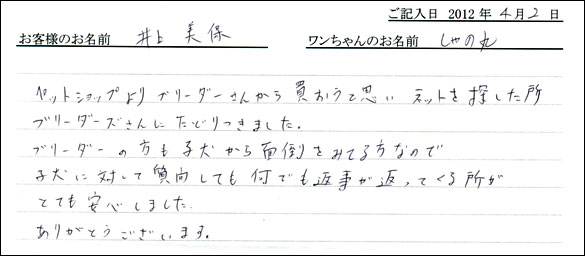 ご記入日 2012年 4月 2日
お客様のお名前 井上 美保 ワンちゃんのお名前 しゃの丸
ペットショップより ブリーダーさんから 買おうと思い ネットを探した所
ブリーダーズさんに たどりつきました。
ブリーダーの方も 子犬から 面倒をみてる方なので
子犬に対して 質向しても 何でも返事が返ってくる所が
とても 安心しました。
ありがとうございます。